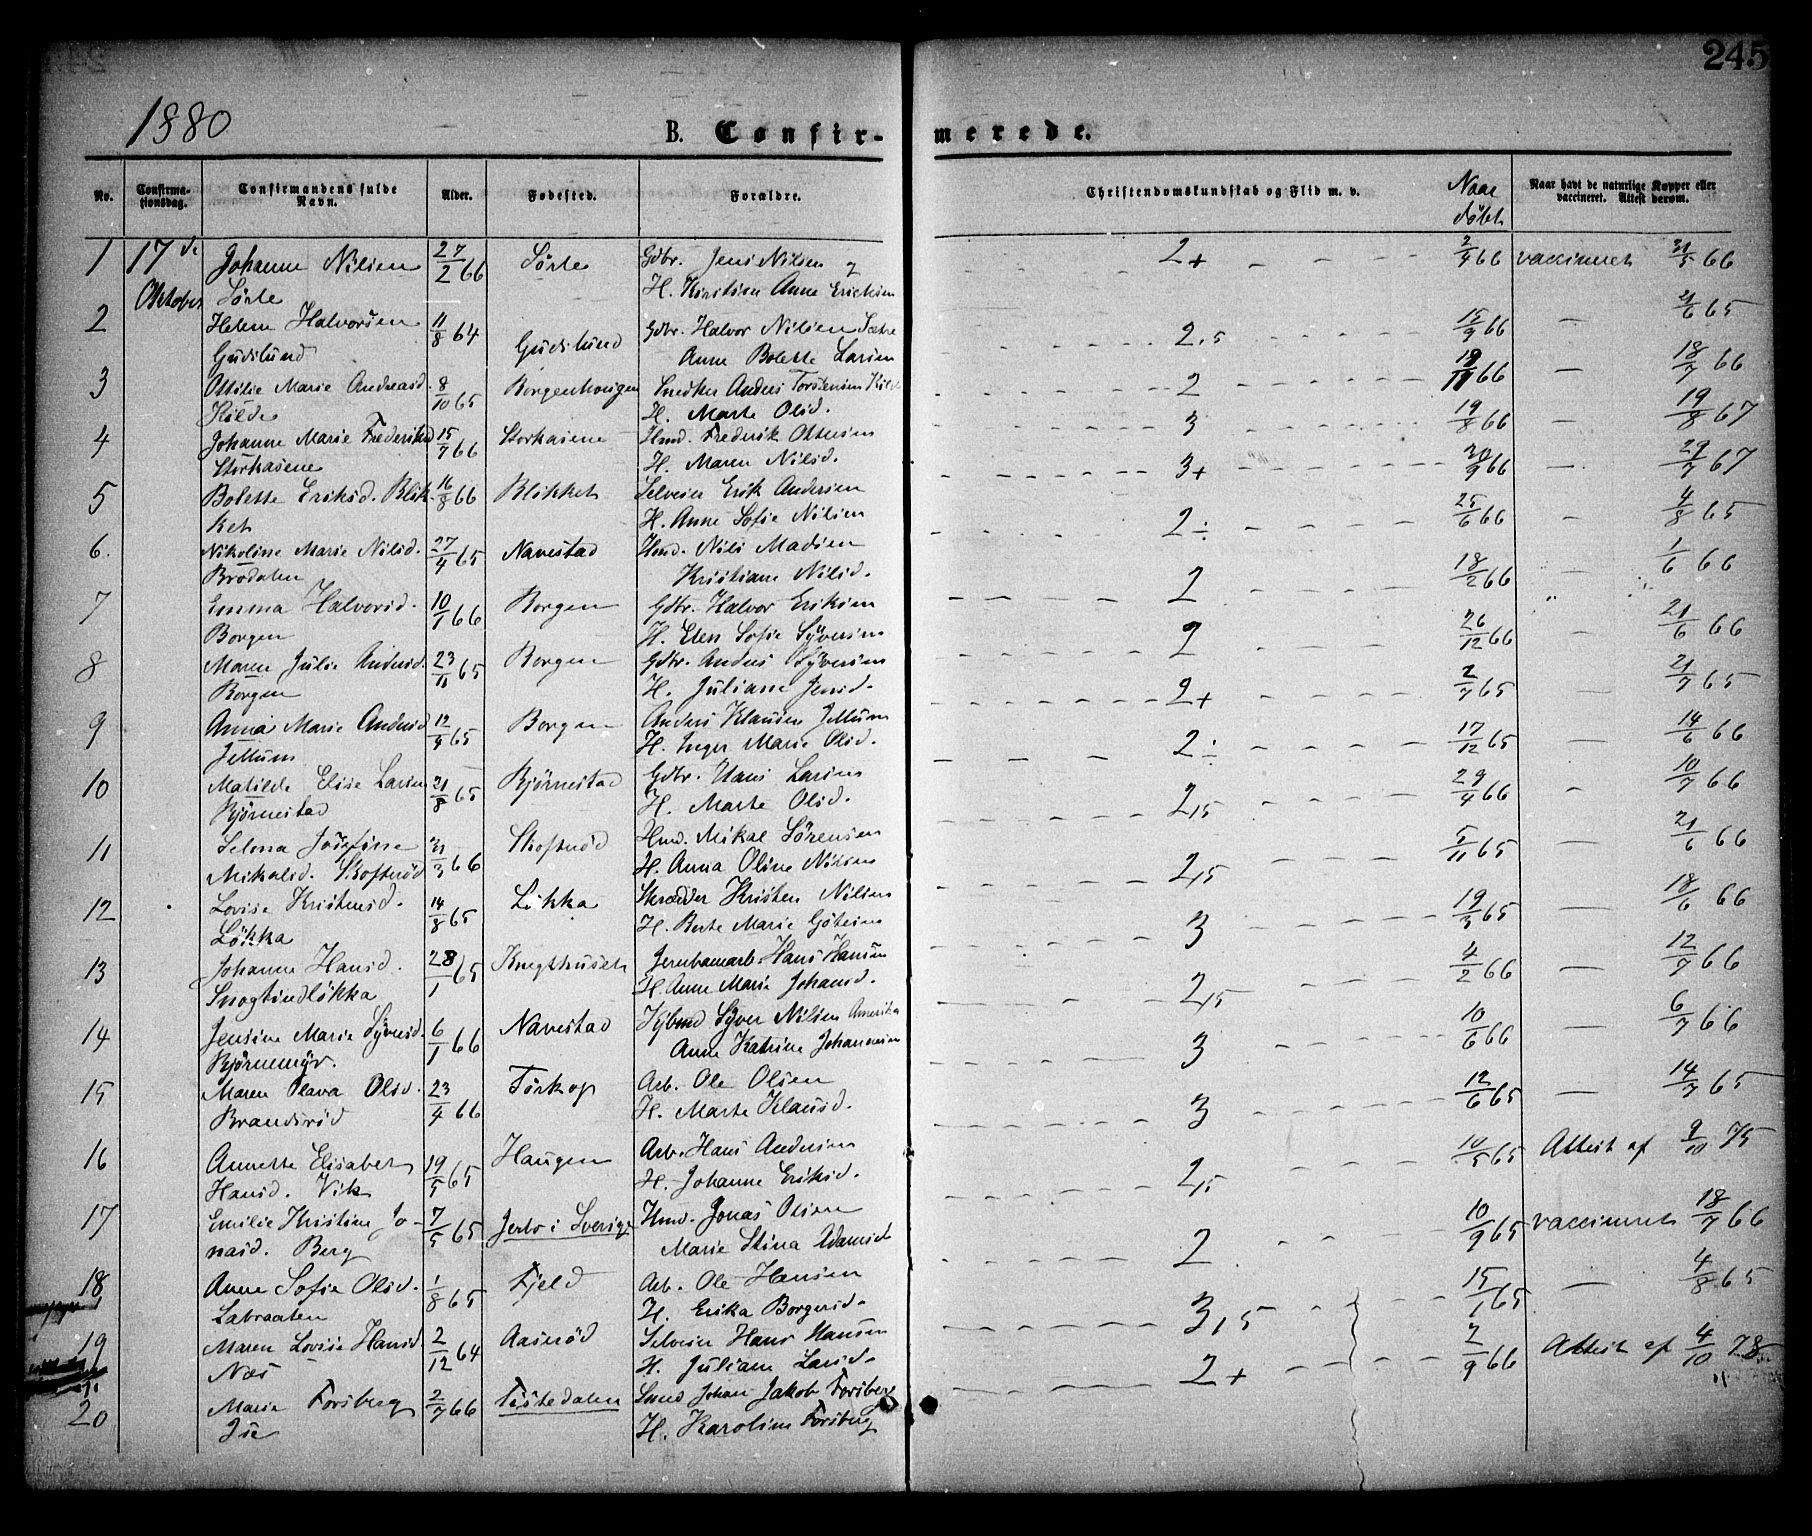 245
1880
B. Confir- merede.
No. Confirma-tionsdag. Confirmandens fulde Navn. Alder. Fødested. Forældre. Christendomskundskab og Flid m. v. Naar døbt Naar havt de naturlige Kopper eller vaccineret. Attest derom.
1 17de Johanne Nilsen 27/2 66 Sørte Gdbr. Jens Nilsen og 2+ 2/4 66 vaccineret 31/5 66
Oktober Sørte H. Kirstine Anne Ericksen
2 Helene Halvorsen 11/8 64 Gudslund Gdbr. Halvor Nilsen Sætre 2,5 15/9 66 — 21/6 65
Gudslund Anne Bolette Larsen
3 Ottilie Marie Andreasd. 8/10 65 Borgenhougen Snedker Anders Torstensen Kilde 2 19/11 66 — 18/7 66
Kilde H. Marte Olsd.
4 Johanne Marie Frederiksd 15/7 66 Storhasene Hmd. Fredrik Ottesen 3 19/8 66 — 19/8 67
Storhasene H. Maren Nilsd.
5 Bolette Eriksd. Blik- 16/8 66 Blikket Selveier Erik Andersen 3+ 30/9 66 — 29/7 67
ket H. Anne Sofie Nilsen
6. Nikoline Marie Nilsd. 27/4 65 Navestad Hmd. Nils Madsen 2÷ 25/6 66 — 4/8 65
Brødalen Kristiane Nilsd.
7 Emma Halvorsd. 10/1 66 Borgen Gdbr. Halvor Eriksen 2 18/2 66 " 1/6 66
Borgen H. Elen Sofie Syversen
8 Maren Julie Andersd. 23/11 65 Borgen Gdbr. Anders Syversen 2 26/12 66 — 21/6 66
Borgen H. Juliane Jensd.
9 Anna Marie Andersd 12/4 65 Borgen Anders Klausen Jellum 2+ 2/7 65 — 21/7 65
Jellum H. Inger Marie Olsd.
10 Matilde Elise Larsen 21/8 65 Bjørnestad Gdbr. Hans Larsen 2÷ 17/12 65 — 14/6 66
Bjørnestad H. Marte Olsd.
11 Selma Josefine 31/3 66 Skofterød Hmd. Mikal Sørensen 2,5 29/4 66 — 10/7 66
Mikalsd. Skofterød H. Anna Oline Nilsen
12 Lovise Kristensd. 14/8 65 Løkka Skrædder Kristen Nilsen 2,5 5/11 65 21/6 66
Løkka H. Berte Marie
13 Johanne Hansd. 28/1 65 Knegthuset Jernbanearb. Hans Hansen 3 19/3 65 — 18/6 66
Snogtindløkka H. Anne Marie Johansd.
14 Jensine Marie Syversd. 6/1 66 Navestad Syver Nilsen Amerika 2,5 4/2 66 — 12/7 66
Bjørnemyr. Anne Katrine Johannesen
15 Maren Olava Olsd. 23/4 66 Torkop Arb. Ole Olsen 3 10/6 66 — 6/7 66
Brandsrød H. Marte Klausd.
16 Annette Elisabet 19/5 65 Haugen Arb. Hans Andersen 3 12/6 65 — 14/7 65
Hansd. Vik H. Johanne Eriksd.
17 Emilie Kristine Jo- 7/5 65 Jerbo i Sverige Hmd. Jonas Olsen 2,5 10/5 65 Attest af 9/10 75
nasd. Berg Marie Stina Adamsd
18 Anne Sofie Olsd. 1/8 65 Fjeld Arb. Ole Hansen 2 10/9 65 vaccineret 18/7 66
Labraaten H. Erika Borgersd.
19 Maren Lovise Hansd. 2/12 64 Aaserød Selveier Hans Hansen 3,5 15/1 65 — 4/8 65
Næs H. Juliane Larsd.
20 Marie Forsberg 2/7 66 Tistedalen Smed Johan Jakob Forsberg 2+ 2/9 66 Attest af 4/10 78
Ise H. Karoline Forsberg